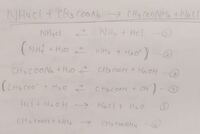 NH₄Cl + CH₃COONa → CH₃COONH₄ + NaCl
NH₄Cl ⇌ NH₃ + HCl —①
(NH₄⁺ + H₂O ⇌ NH₃ + H₃O⁺)
CH₃COONa + H₂O ⇌ CH₃COOH + NaOH —②
(CH₃COO⁻ + H₂O ⇌ CH₃COOH + OH⁻)
HCl + NaOH → NaCl + H₂O —③
CH₃COOH + NH₃ → CH₃COONH₄ —④